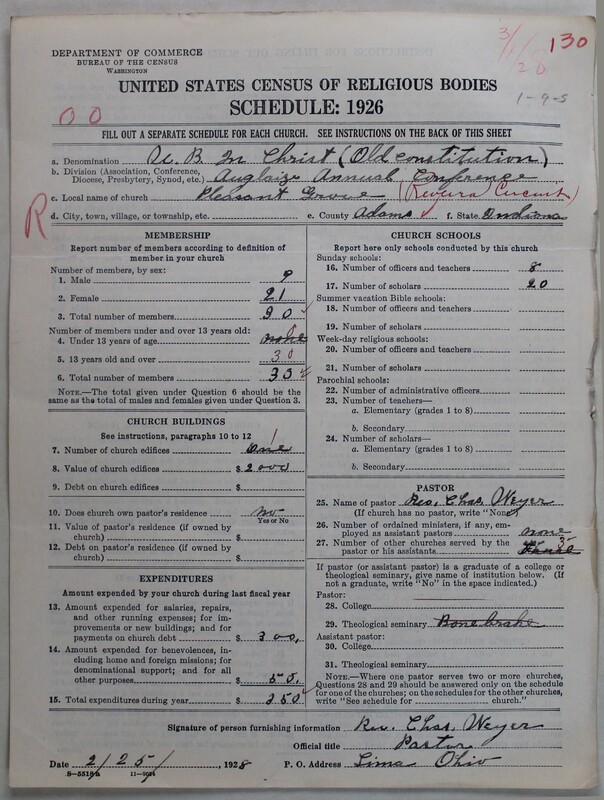 3/1/28 130
1-9-5
DEPARTMENT OF COMMERCE
BUREAU OF THE CENSUS
WASHINGTON
UNITED STATES CENSUS OF RELIGIOUS BODIES
SCHEDULE: 1926
00
FILL OUT A SEPARATE SCHEDULE FOR EACH CHURCH. SEE INSTRUCTIONS ON THE BACK OF THIS SHEET
a. Denomination U. B. In Christ (Old constitution)
b. Division (Association, Conference, Diocese, Presbytery, Synod, etc.) Auglaize Annual Conference
c. Local name of church Pleasant Grove
R
d. City, town, village, or township, etc. e. County Adams f. State Indiana
MEMBERSHIP
Report number of members according to definition of member in your church
Number of members, by sex:
1. Male 9
2. Female 21
3. Total number of members 30
Number of members under and over 13 years old:
4. Under 13 years of age none 0
5. 13 years old and over 30
6. Total number of members 30
NOTE.—The total given under Question 6 should be the same as the total of males and females given under Question 3.
CHURCH BUILDINGS
See instructions, paragraphs 10 to 12
7. Number of church edifices One 1
8. Value of church edifices $ 2000
9. Debt on church edifices $
10. Does church own pastor's residence? No
Yes or No
11. Value of pastor's residence (if owned by church) $
12. Debt on pastor's residence (if owned by church) $
EXPENDITURES
Amount expended by your church during last fiscal year
13. Amount expended for salaries, repairs, and other running expenses; for improvements or new buildings; and for payments on church debt $ 300.
14. Amount expended for benevolences, including home and foreign missions; for denominational support; and for all other purposes $ 50.
15. Total expenditures during year $ 350
CHURCH SCHOOLS
Report here only schools conducted by this church
Sunday schools:
16. Number of officers and teachers 8
17. Number of scholars 20
Summer vacation Bible schools:
18. Number of officers and teachers
19. Number of scholars
Week-day religious schools:
20. Number of officers and teachers
21. Number of scholars
Parochial schools:
22. Number of administrative officers
23. Number of teachers—
a. Elementary (grades 1 to 8)
b. Secondary
24. Number of scholars—
a. Elementary (grades 1 to 8)
b. Secondary
PASTOR
25. Name of pastor Rev. Chas. Weyer
(If church has no pastor, write "None")
26. Number of ordained ministers, if any, employed as assistant pastors none
27. Number of other churches served by the pastor or his assistants 3
If pastor (or assistant pastor) is a graduate of a college or theological seminary, give name of institution below. (If not a graduate, write "No" in the space indicated.)
Pastor:
28. College
29. Theological seminary Bonebrake
Assistant pastor:
30. College
31. Theological seminary
NOTE.—Where one pastor serves two or more churches, Questions 28 and 29 should be answered only on the schedule for one of the churches; on the schedules for the other churches, write "See schedule for church."
Signature of person furnishing information Rev. Chas. Weyer
Official title Pastor
Date 2/25/, 1928 P. O. Address Lima Ohio
8-5518a 11-9024